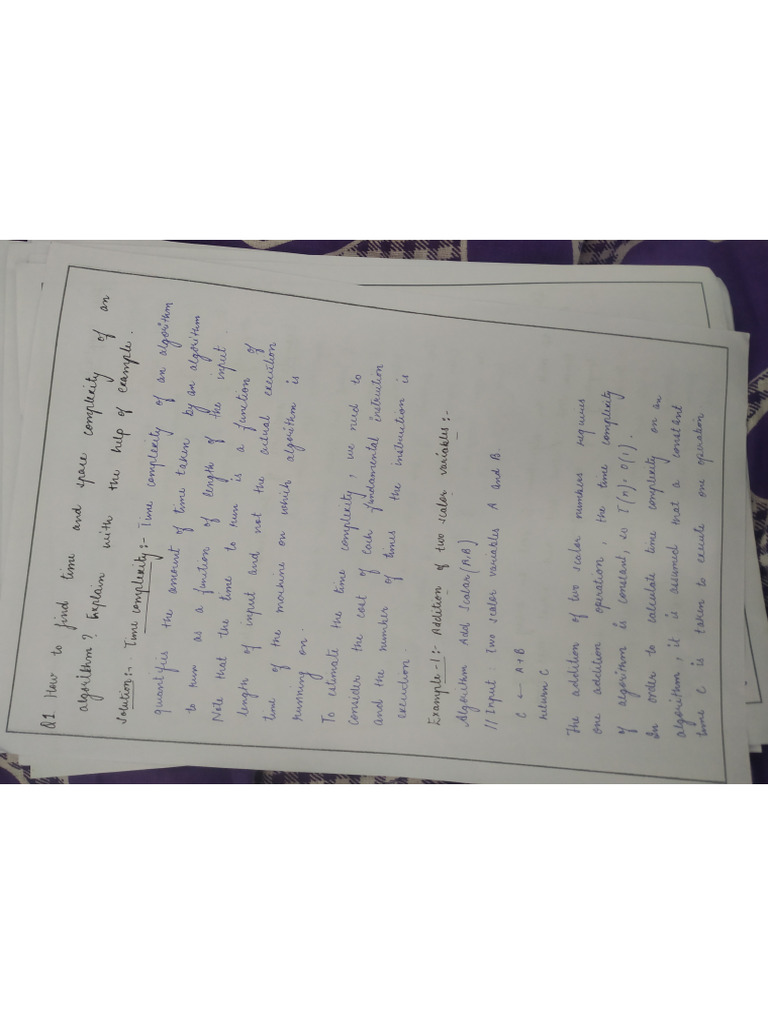 Q1. How to find time and space complexity of an
algorithm? Explain with the help of example.
Solution:- Time complexity:- Time complexity of an algorithm
quantifies the amount of time taken by an algorithm
to run as a function of length of the input.
Note that the time to run is a function of
length of input and not the actual execution
time of the machine on which algorithm is
running on.
To estimate the time complexity, we need to
consider the cost of each fundamental instruction
and the number of times the instruction is
execution.
Example-1:- Addition of two scalar variables:-
Algorithm Add Scalar(A,B)
// Input: Two scalar variables A and B
C ← A+B
return C
The addition of two scalar numbers requires
one addition operation, the time complexity
of algorithm is constant, so T(n) = O(1).
In order to calculate time complexity on an
algorithm, it is assumed that a constant
time c is taken to execute one operation